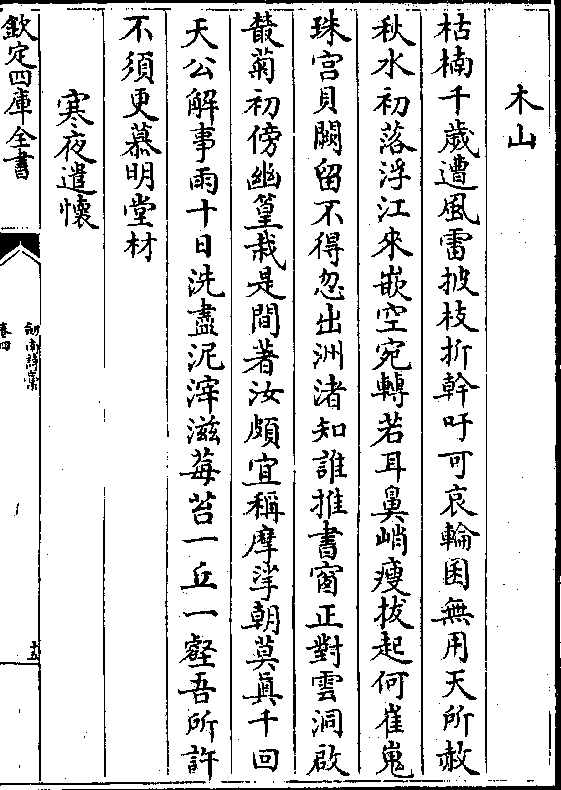 木山
枯楠千歲遭風雷披枝折幹吁可哀輪囷無用天所赦
秋水初落浮江來嵌空宛轉若耳鼻峭瘦拔起何崔嵬
珠宮貝闕留不得忽出洲渚知誰推書窗正對雲洞啟
叢菊初傍幽篁栽是間著汝頗宜稱摩挲朝莫真千回
天公解事雨十日洗盡泥滓滋莓苔一丘一壑吾所許
不須更慕明堂材
寒夜遣懷
欽定四庫全書
劍南詩稾
卷四